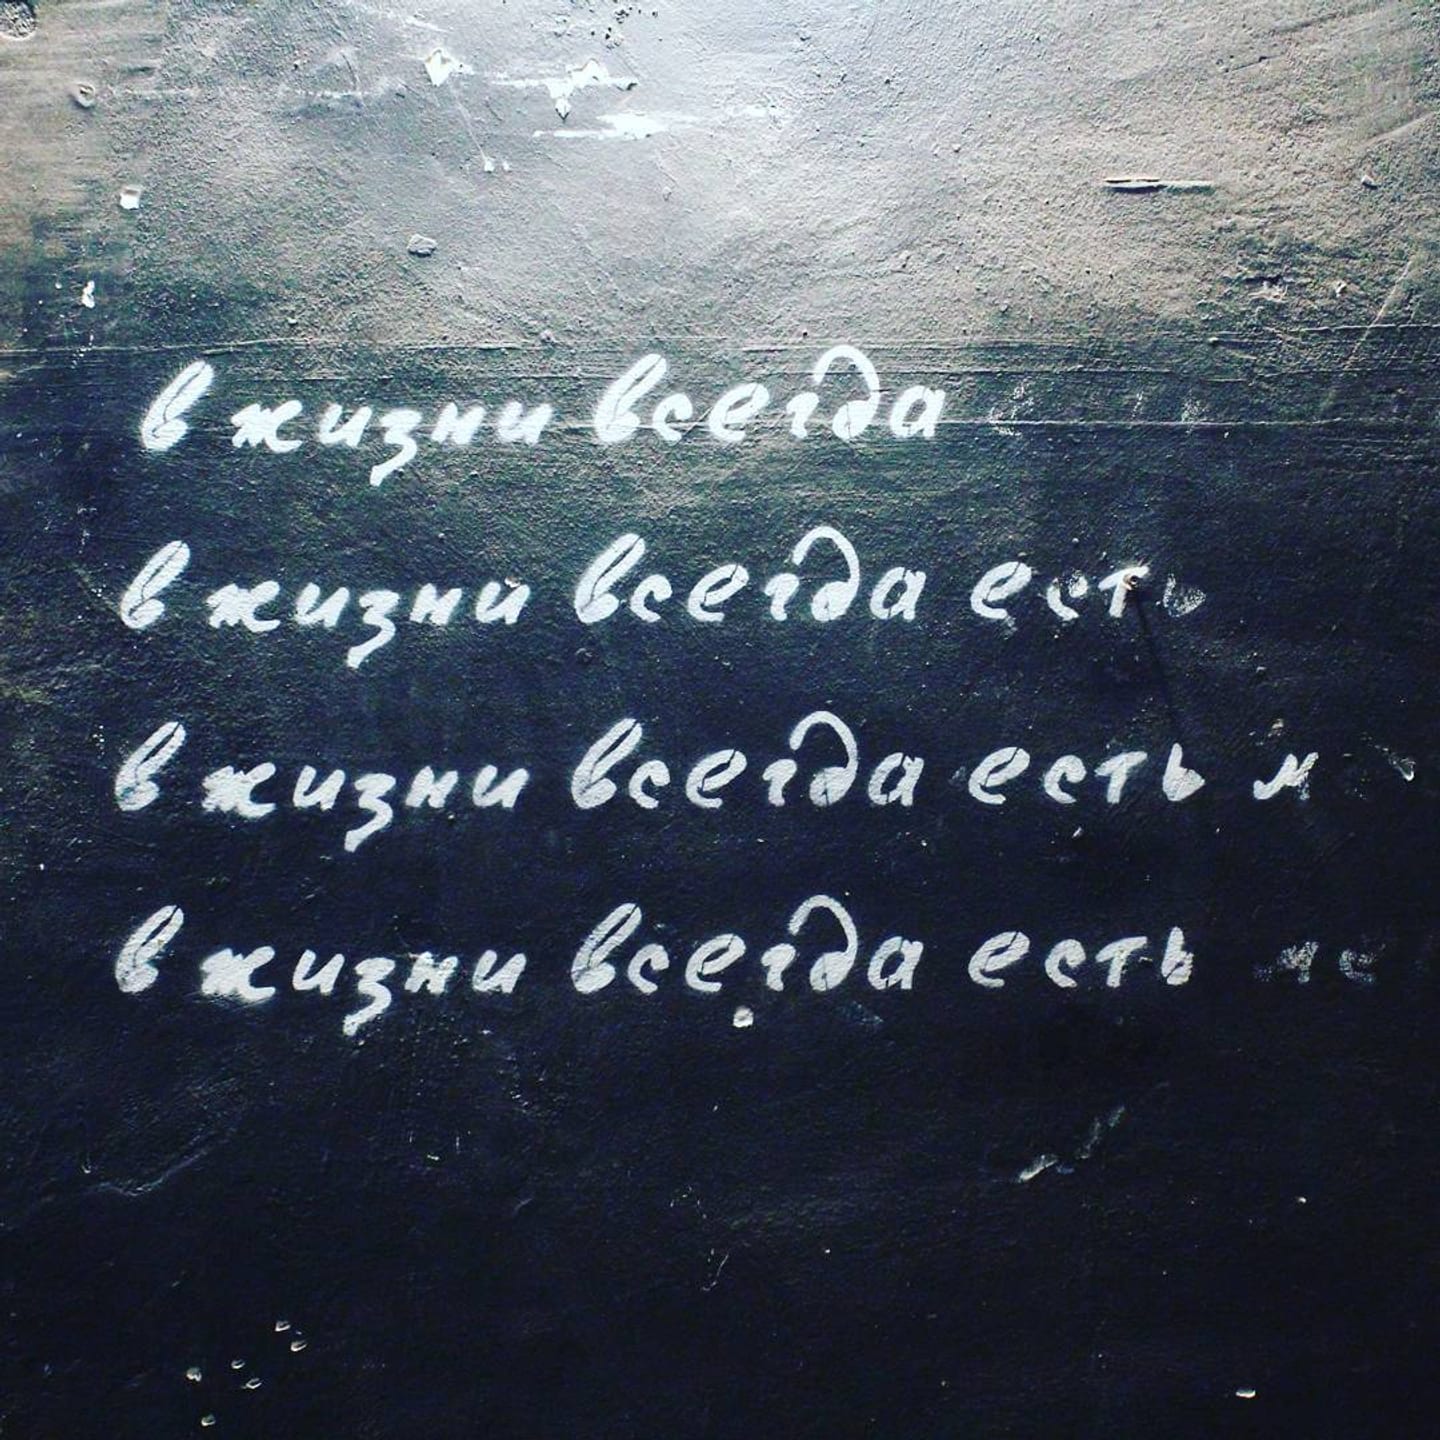 в жизни всегда
в жизни всегда есть
в жизни всегда есть м
в жизни всегда есть ме